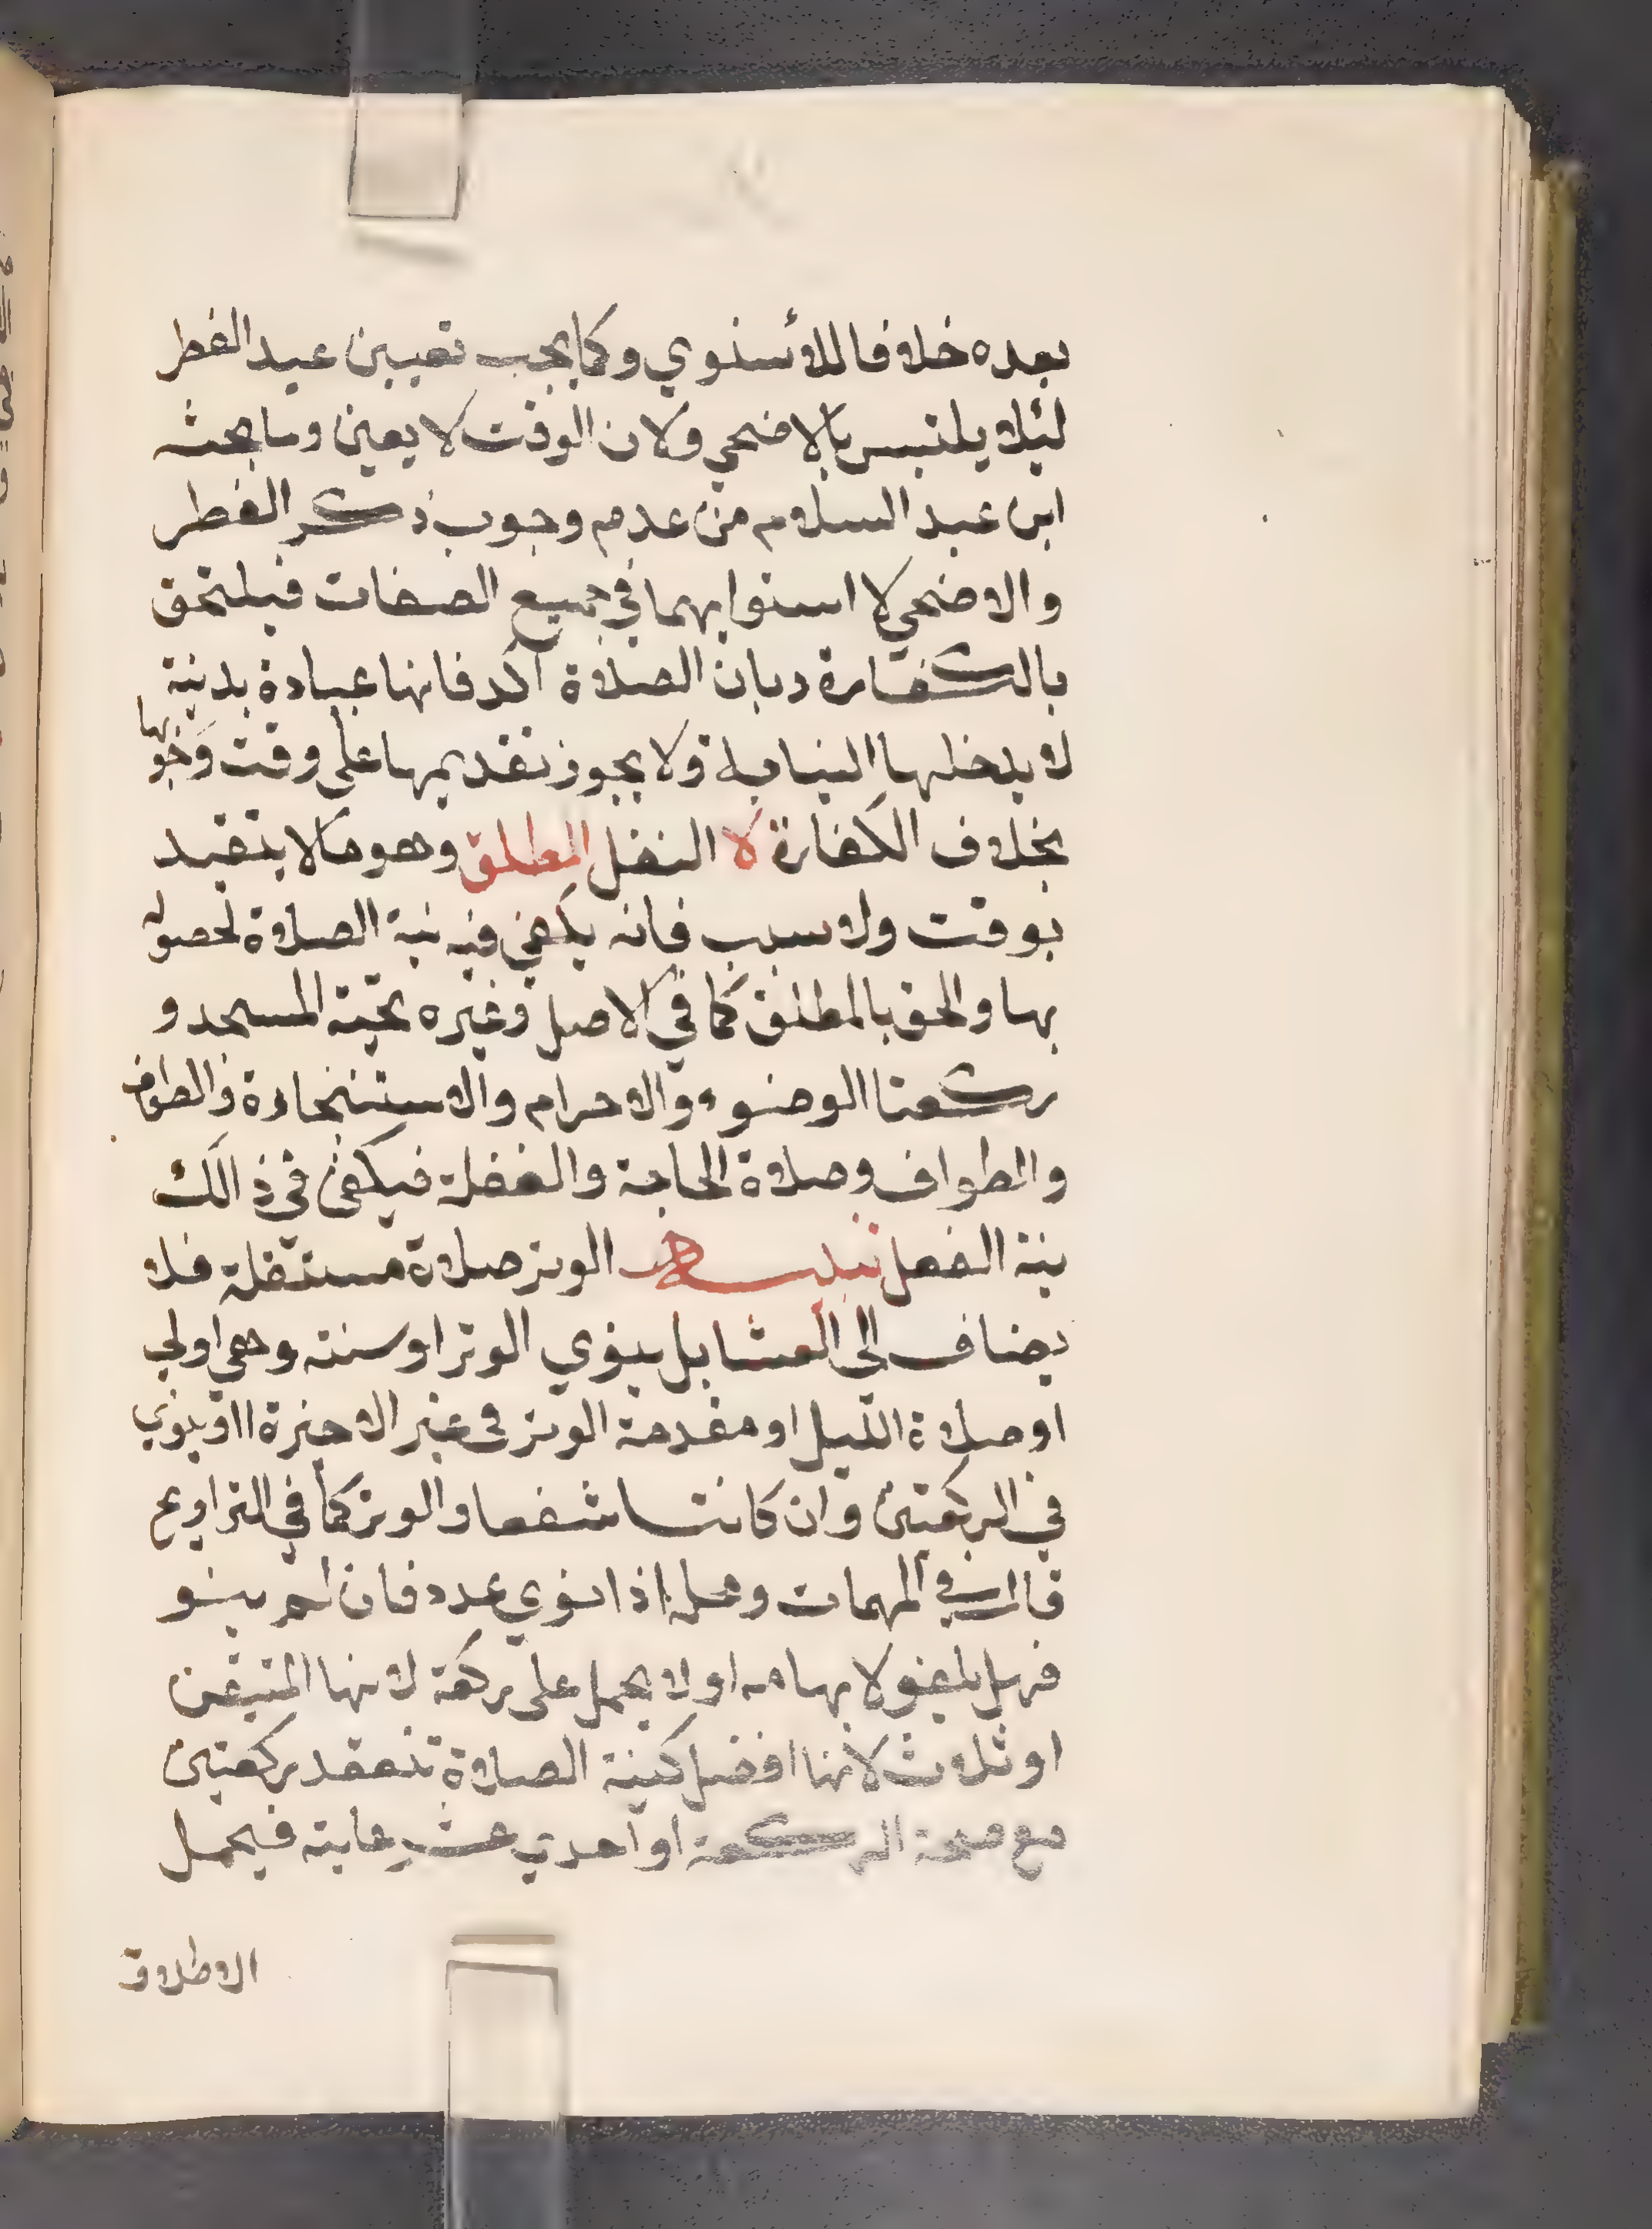 بعده خلافا للأسنوي وكما يجب تعيين عيد الفطر
ليلا يلتبس بالاضحي ولان الوقت لا يعين وما بحثه
ابن عبد السلام من عدم وجوب ذكر الفطر
والاضحي لا استوايهما في جميع الصفات فيلتحق
بالكفارة رد بان الصلاة آكد فانها عبادة بدنية
لا يدخلها النيابة ولا يجوز تقديمها على وقت وجوبها
بخلاف الكفارة لا النفل المطلق وهو ما لا يتقيد
بوقت ولا سبب فانه يكفي فيه نية الصلاة لحصوله
بها والحق بالمطلق كما في الاصل وغيره تحية المسجد و
ركعتا الوضوء والاحرام والاستخارة والطواف
والطواف وصلاة الحاجة والغفلة فيكفي في ذالك
نية الفعل تنبيه الوتر صلاة مستقلة فلا
يضاف الى العشا بل ينوي الوتر او سنته وهي اولي
او صلاة الليل او مقدمة الوتر في غير الاخيرة او ينوي
في الركعتين وان كانتا شفعا والوتر كما في التراويح
قال في المهمات ومحله اذا نوي عدد فان لم ينو
فهل يلغو لابهامه او لا يحمل على ركعة لانها المتيقن
او ثلاث لانها افضل كنية الصلاة تنعقد ركعتين
مع صحة الركعة او احدي عشر غايته فيحمل
الاطلاق